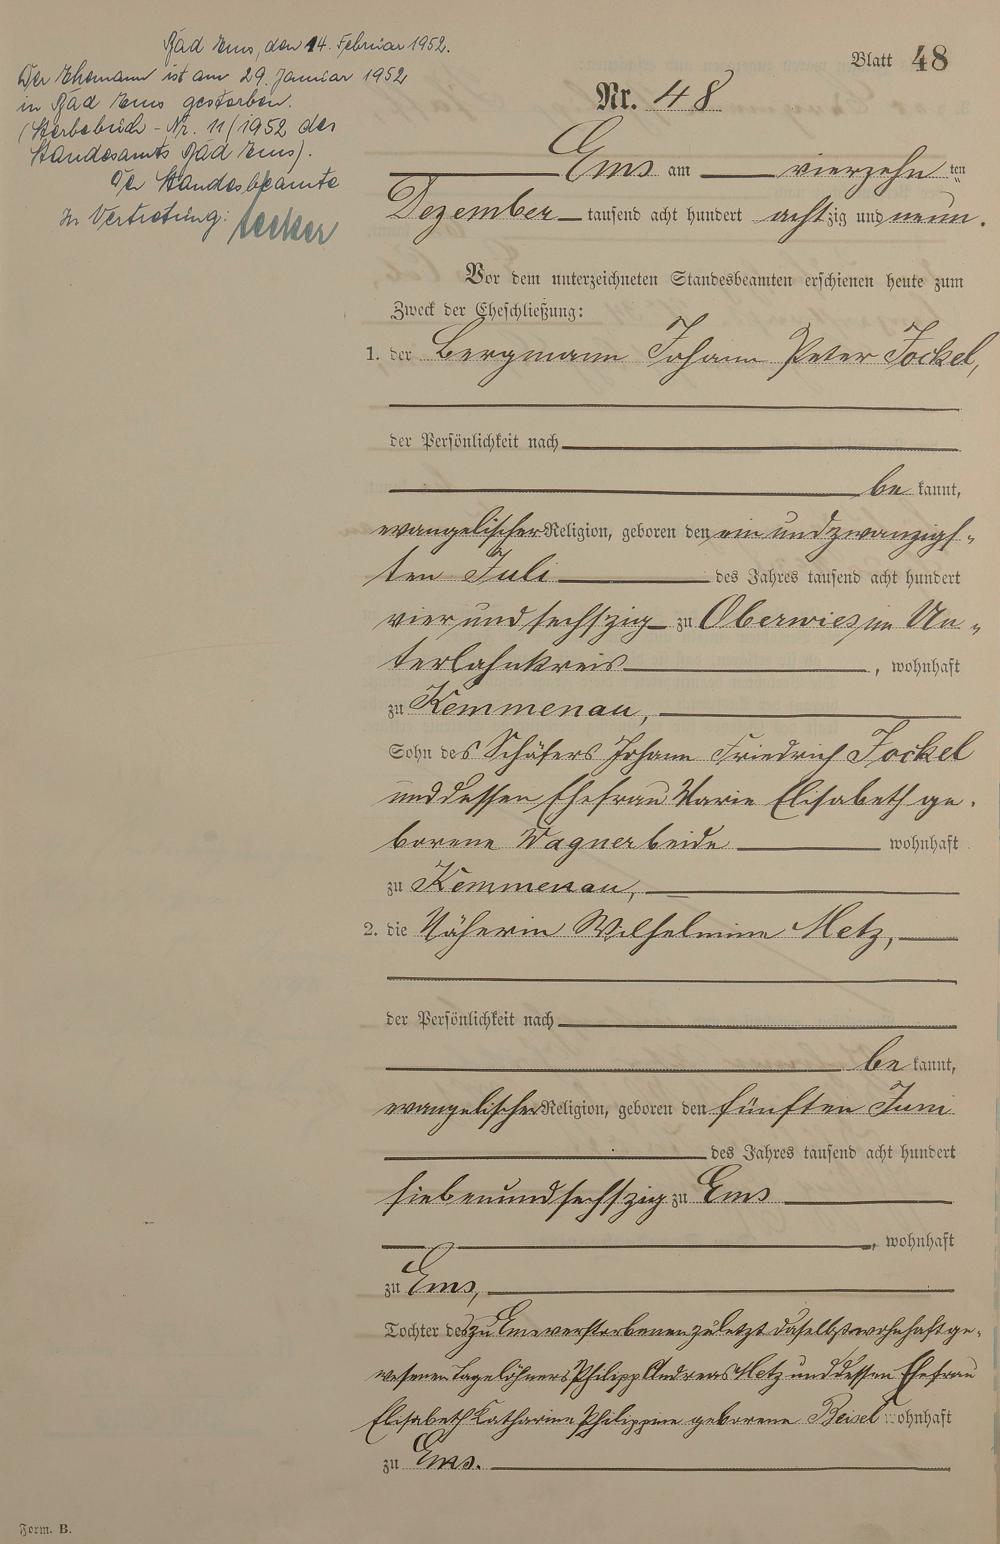 Bad Ems, den 14. Februar 1952.
Der Ehemann ist am 29. Januar 1952
in Bad Ems gestorben.
(Sterbebuch - Nr. 11/1952 des
Standesamts Bad Ems).
Der Standesbeamte
In Vertretung:
Blatt 48
Nr. 48
Ems am vierzehn ten
Dezember tausend acht hundert achtzig und neun.
Vor dem unterzeichneten Standesbeamten erschienen heute zum
Zweck der Eheschließung:
1. der Bergmann Johann Peter Jockel,
der Persönlichkeit nach
be kannt,
evangelischer Religion, geboren den ein und zwanzigs-
ten Juli des Jahres tausend acht hundert
vier und sechszig zu Oberwies im Un-
terlahnkreis, wohnhaft
zu Kemmenau,
Sohn des Schäfers Johann Friedrich Jockel
und dessen Ehefrau Marie Elisabeth ge-
borene Wagner beide wohnhaft
zu Kemmenau,
2. die Näherin Wilhelmine Metz,
der Persönlichkeit nach
be kannt,
evangelischer Religion, geboren den fünften Juni
des Jahres tausend acht hundert
siebenundsechszig zu Ems
, wohnhaft
zu Ems,
Tochter des zu Ems verstorbenen zuletzt daselbst wohnhaft ge-
wesenen Tagelöhners Philipp Andreas Metz und dessen Ehefrau
Elisabeth Katharine Philippine geborene Beisel wohnhaft
zu Ems.
Form. B.